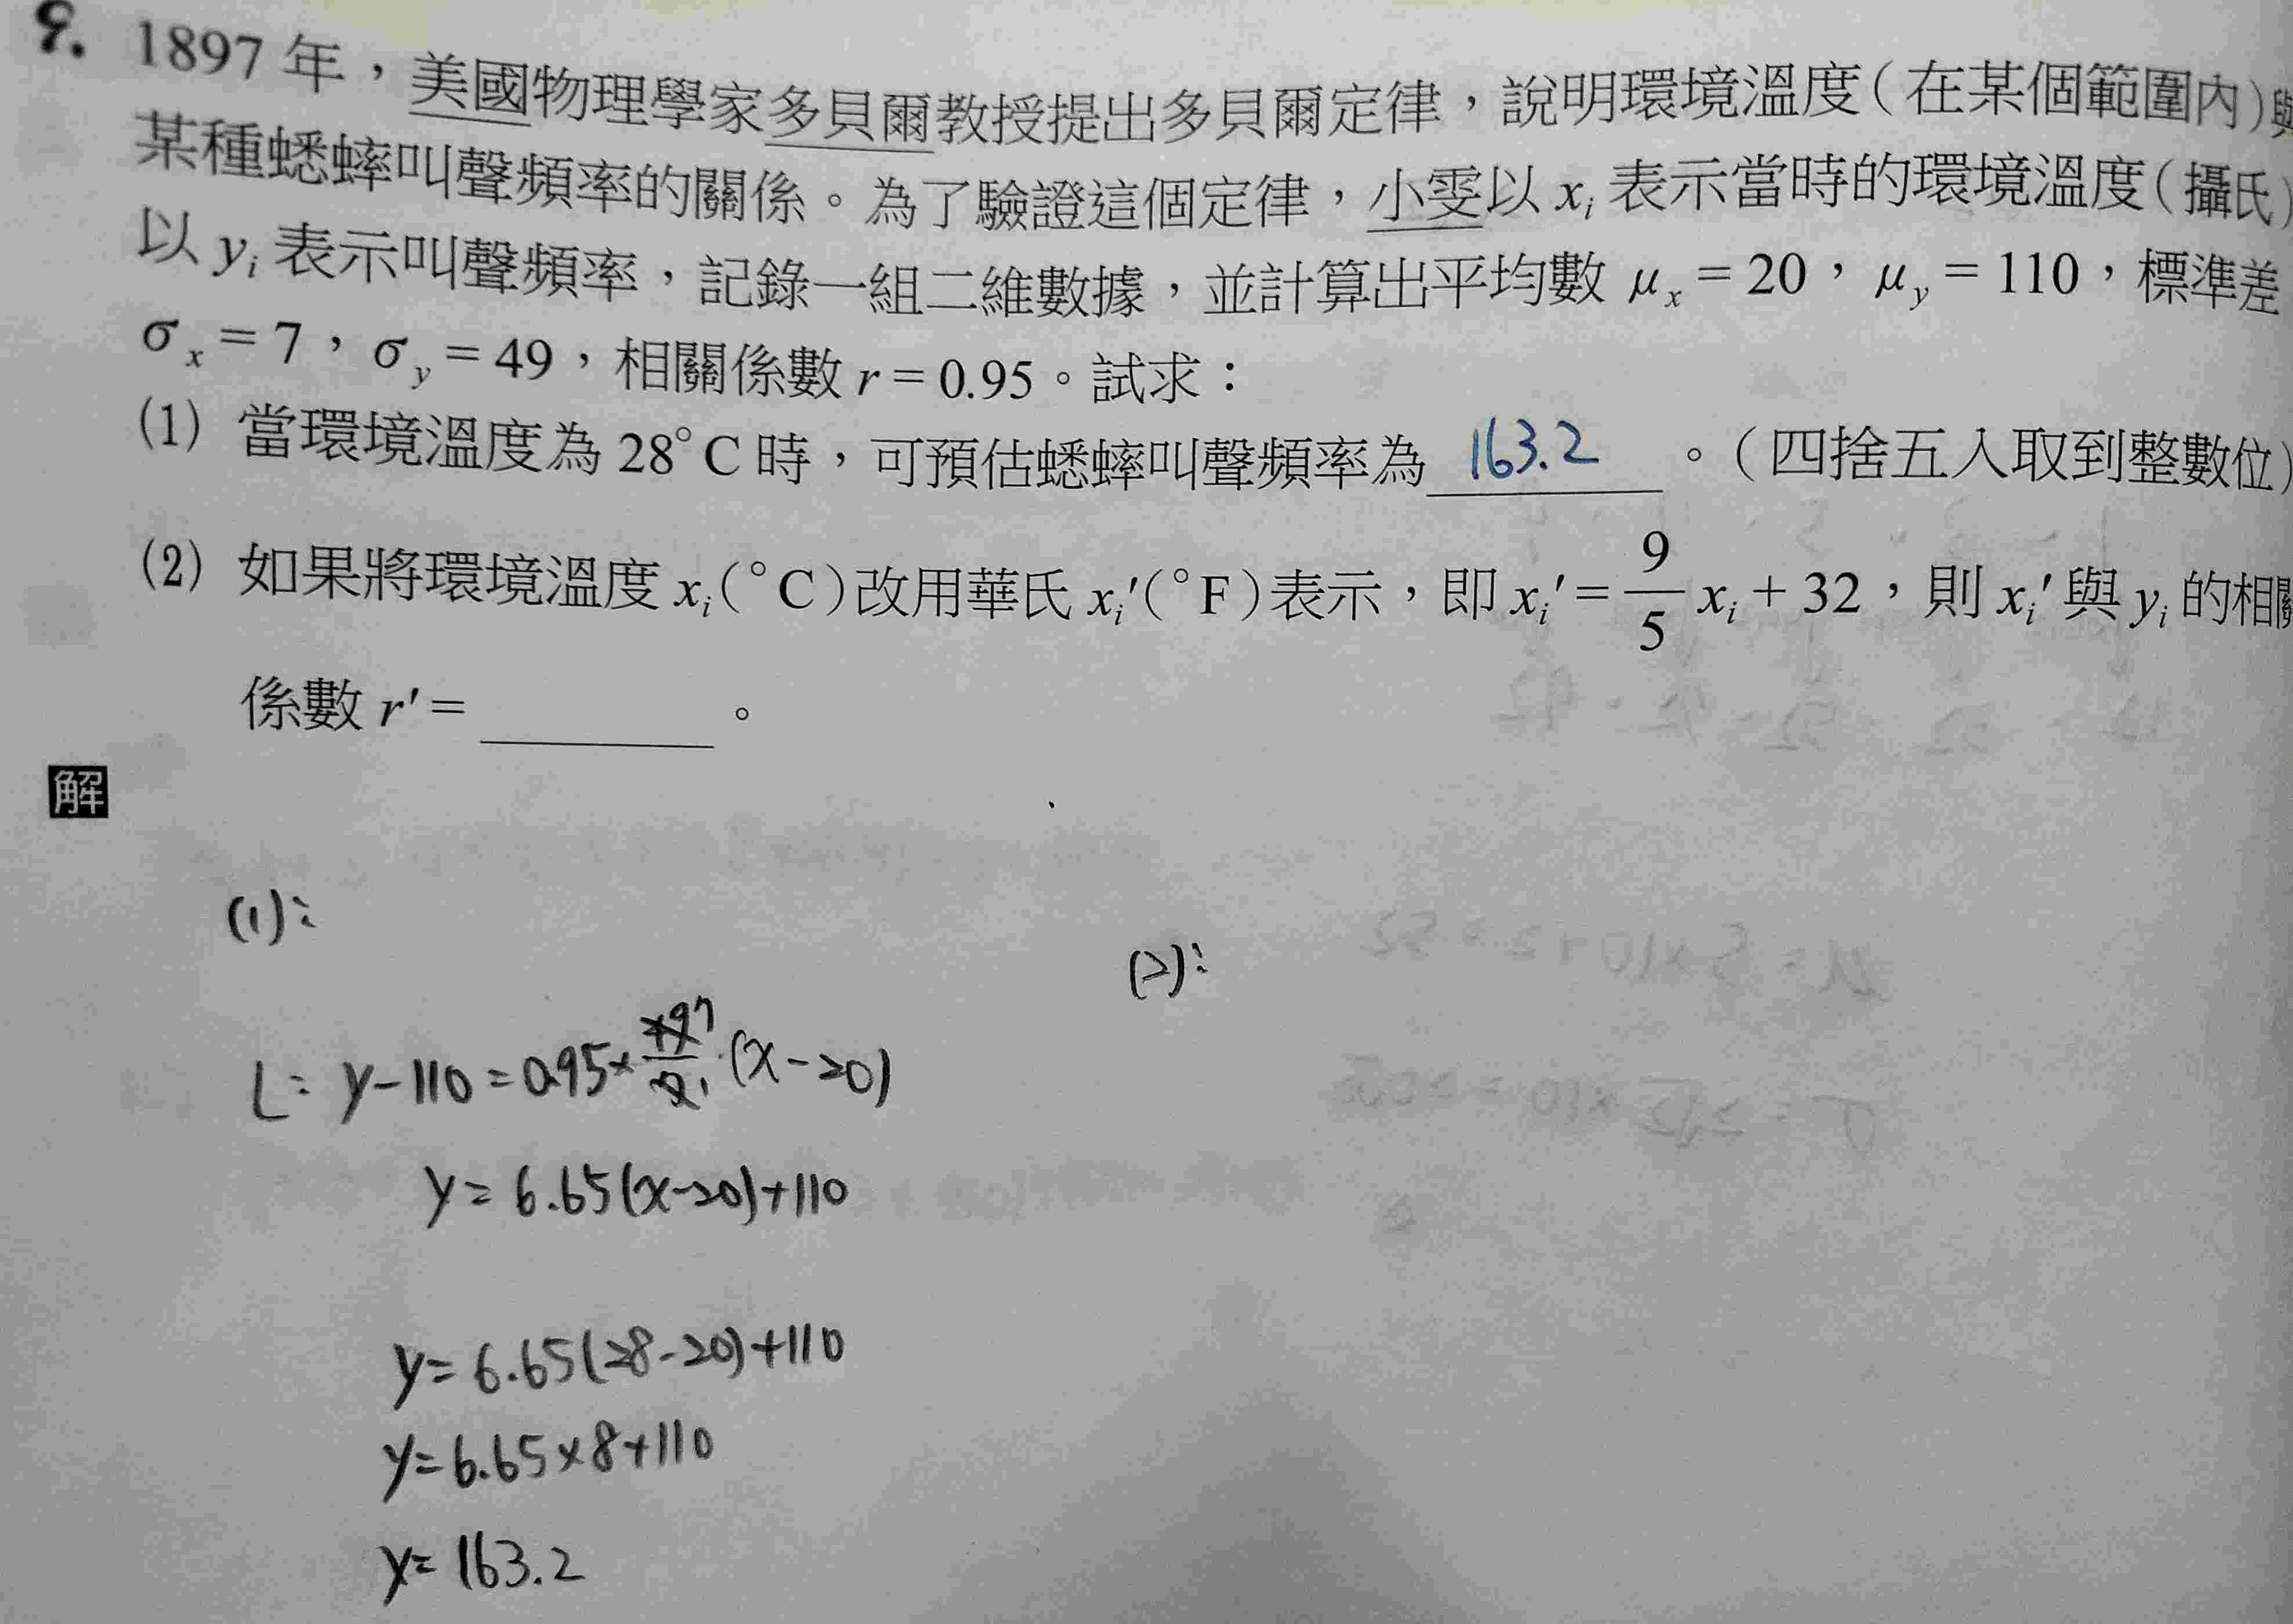 9. 1897 年，美國物理學家多貝爾教授提出多貝爾定律，說明環境溫度(在某個範圍內)與
某種蟋蟀叫聲頻率的關係。為了驗證這個定律，小雯以 xᵢ 表示當時的環境溫度(攝氏)
以 yᵢ 表示叫聲頻率，記錄一組二維數據，並計算出平均數 μₓ = 20，μ_y = 110，標準差
σₓ = 7，σ_y = 49，相關係數 r = 0.95。試求：
(1) 當環境溫度為 28°C 時，可預估蟋蟀叫聲頻率為 163.2 。(四捨五入取到整數位)
(2) 如果將環境溫度 xᵢ(°C)改用華氏 xᵢ′(°F)表示，即 xᵢ′ = 9/5 xᵢ + 32，則 xᵢ′ 與 yᵢ 的相關
係數 r′ = ＿＿＿。
解
(1):
(2):
L: y-110=0.95×49 7/7 1·(x-20)
y=6.65(x-20)+110
y=6.65(28-20)+110
y=6.65×8+110
y=163.2